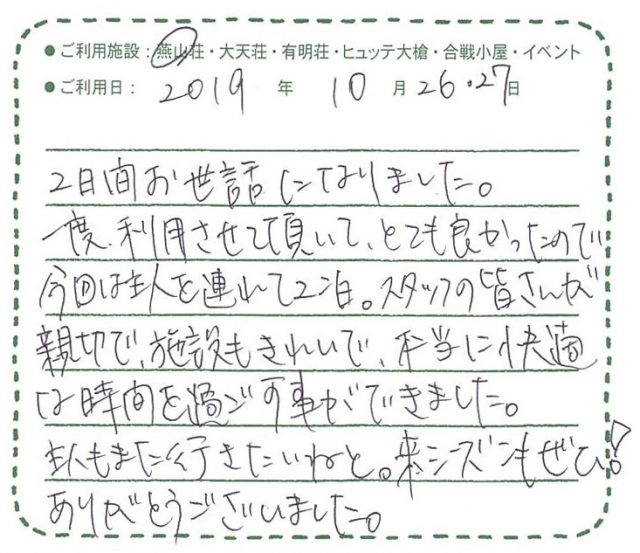 ●ご利用施設：燕山荘・大天荘・有明荘・ヒュッテ大槍・合戦小屋・イベント
●ご利用日： 2019 年 10 月 26・27日
2日間お世話になりました。
一度、利用させて頂いて、とても良かったので
今回は主人を連れて2泊。スタッフの皆さんが
親切で、施設もきれいで、本当に快適
な時間を過ごす事ができました。
主人もまた行きたいねと。来シーズンもぜひ！
ありがとうございました。